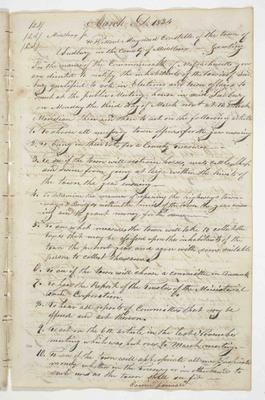 March 3d. 1834
Middlesex Ss. To
Constable of the town of
Sudbury in the County of Middlesex Greeting
In the name of the Commonwealth of Massachusetts you
are directed to notify the inhabitants of the town of Sud-
bury qualified to vote in elections and town affairs to
meet at the public meeting house in said Sudbury
on Monday the third day of March next at
Meridian then and there to act on the following articles
1. To choose all necessary town officers for the year ensuing
2. To bring in their votes for a County
3. To see if the town will restrain horses neat cattle sheep
and swine from going at large within the limits of
the town the year ensuing
4. To determine the manner of repairing the highways town
ways & within the limits of the town the year ensu-
ing and to grant money for the same
5. To see what measures the town will take to collect the
taxes that may be assessed upon the inhabitants of the
town the present year and agree with some suitable
person to collect the same
6. To see if the town will choose a committee
7. To hear the Report of the Trustees of the Ministerial
Corporation
8. To hear all reports of Committees that may be
offered and act thereon
9. To act on the 6th article in the last November
meeting which was put over to March meeting
10. To see if the town will appropriate all money
money whether in the treasury or otherwise to
such use as the town shall